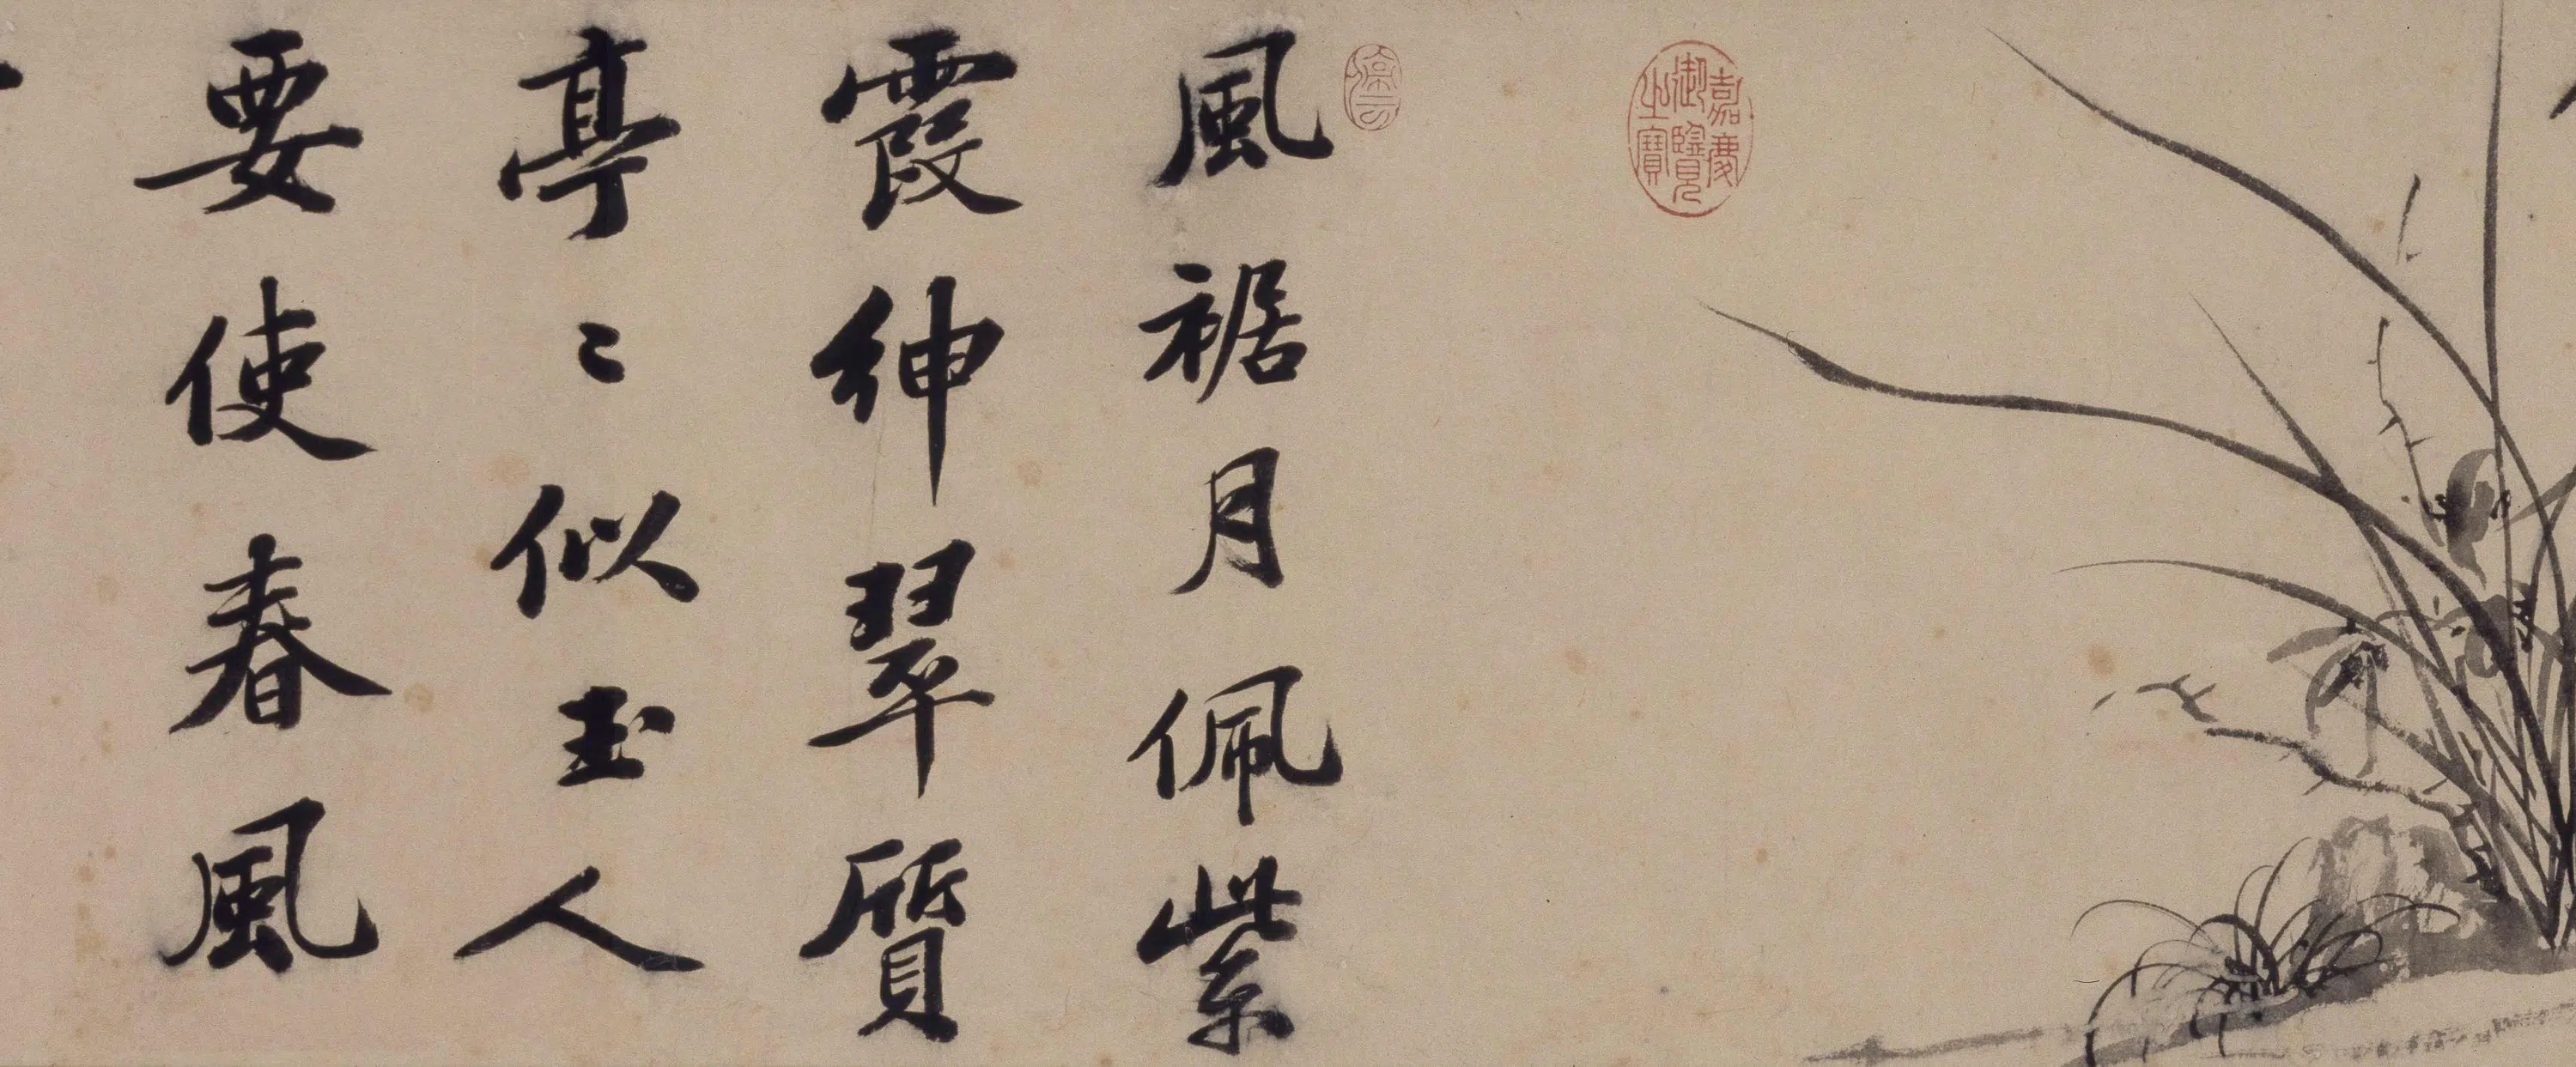 嘉慶
御覽
之寶
風裾月佩紫
霞紳翠質
亭〻似玉人
要使春風